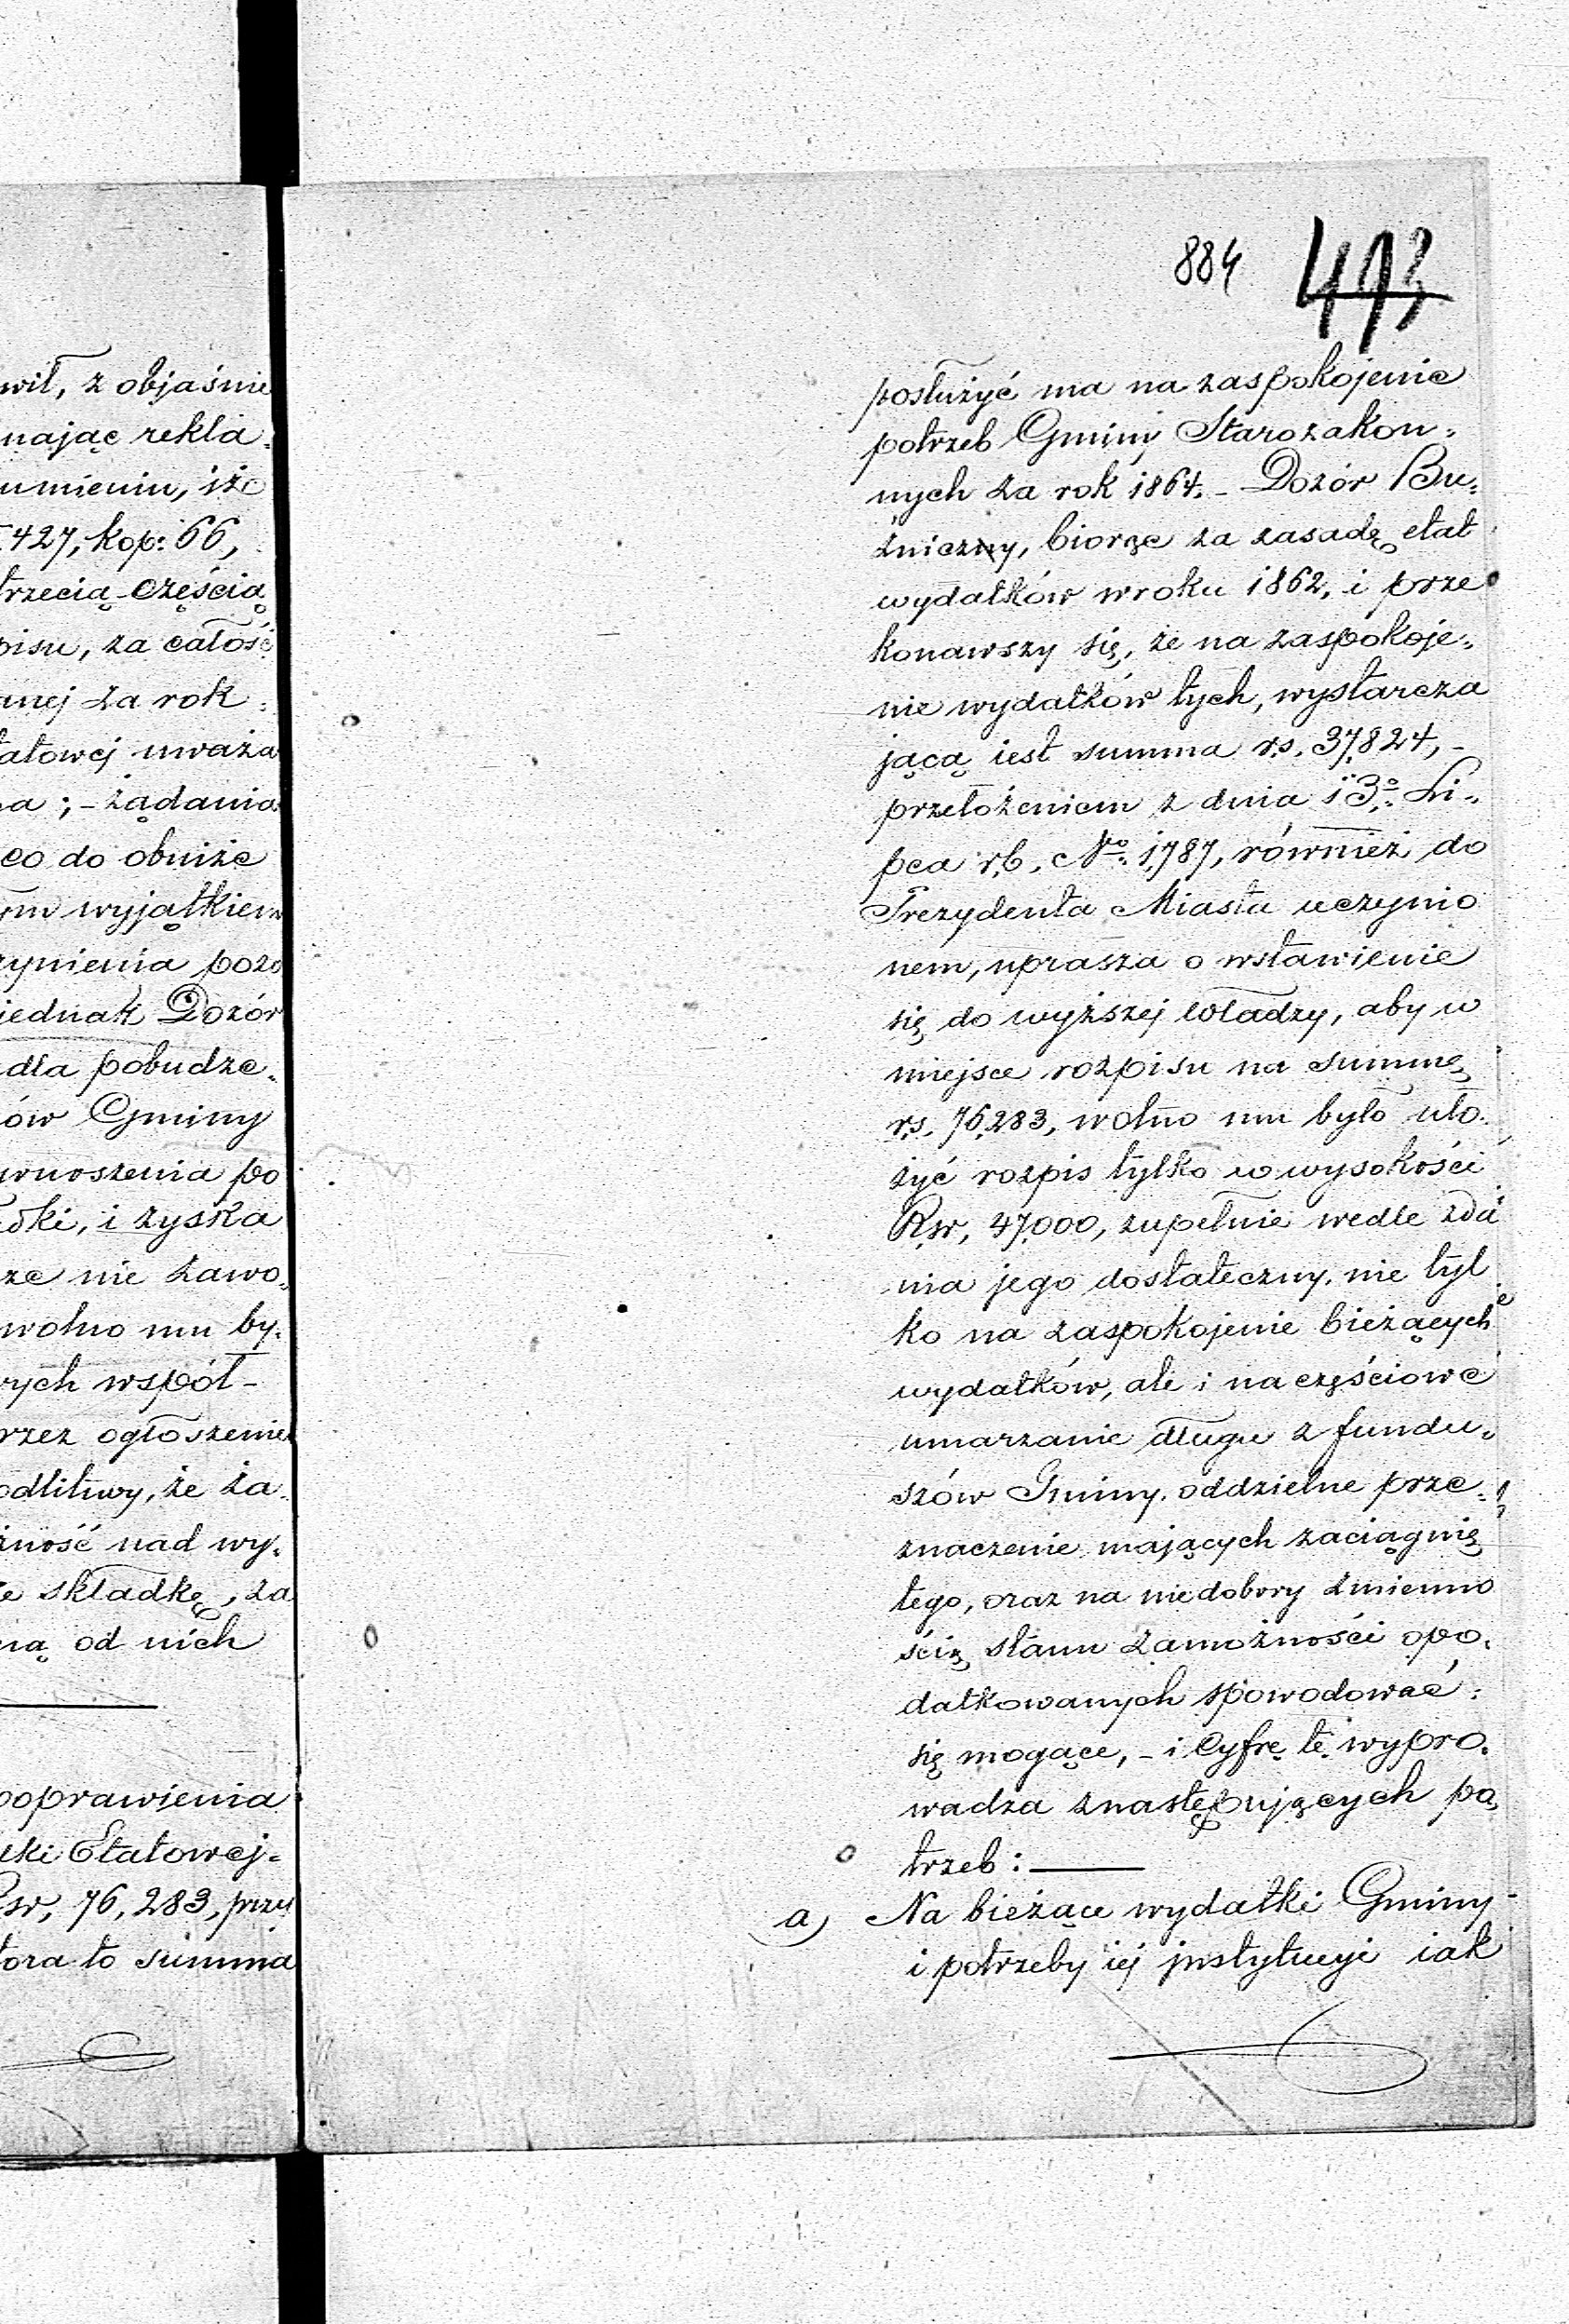 wił, z objaśnie
nając rekla=
umieniu, iże
427, kop: 66,
trzecią częścią
pisu, za całość
anej za rok
tatowej uważa
a; – żądania
co do obniże
ym wyjątkiem
zynienia pozo
iednak Dozór
dla pobudze=
ów Gminy
wnoszenia po
dki, i zyska
ze nie zawo=
wolno mu by=
ych współ–
rzez ogłoszenie
odlitwy, że ża=
żność nad wy=
e składkę, za
ną od nich
poprawienia
uki Etatowej=
Rsr, 76,283, przy
tóra to summa
884 493
posłużyć ma na zaspokojenie
potrzeb Gminy Starozakon=
nych za rok 1864. – Dozór Bu=
źniczny, biorąc za zasadę etat
wydatków w roku 1862, i prze
konawszy się, że na zaspokoje=
nie wydatków tych, wystarcza
jącą iest summa rs. 37,824, –
przełożeniem z dnia 13º Li=
pca r.b. Nº 1,787, również do
Prezydenta Miasta uczynio
nem, uprasza o wstawienie
się do wyższej władzy, aby w
miejsce rozpisu na summę
rs. 76,283, wolno mu było uło=
żyć rozpis tylko w wysokości
Rsr, 47,000, zupełnie wedle zda
nia jego dostateczny, nie tyl
ko na zaspokojenie bieżących
wydatków, ale i na częściowe
umarzanie długu z fundu=
szów Gminy, oddzielne prze=
znaczenie mających zaciągnię
tego, oraz na niedobory zmienno
ścią stanu zamożności opo=
datkowanych spowodować
się mogące, – i Cyfrę tę wypro=
wadza z następujących po
trzeb: —
a) Na bieżące wydatki Gminy
i potrzeby iej instytucyi iak